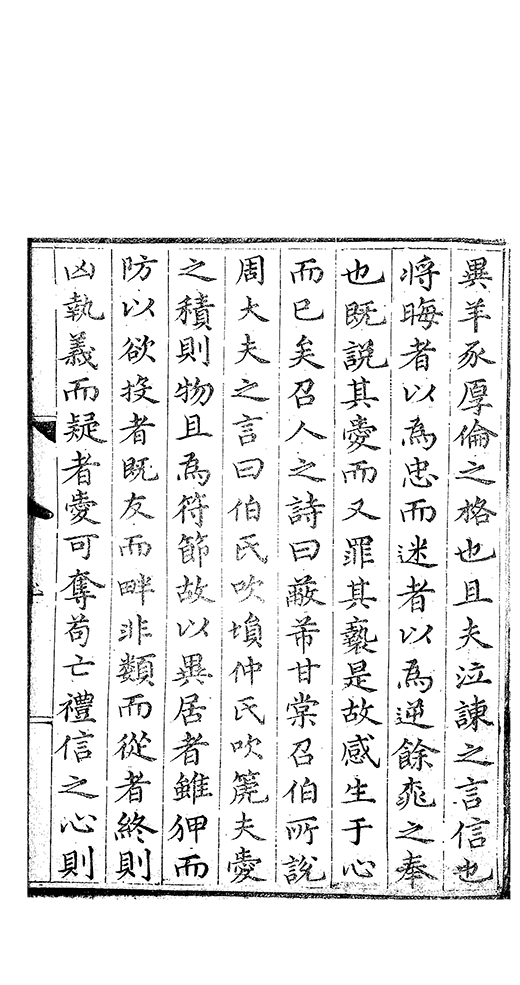 異羊豕厚倫之格也且夫泣諫之言信也
將晦者以為忠而迷者以為逆餘桃之奉
也既說其愛而又罪其褻是故感生于心
而已矣召人之詩曰蔽芾甘棠召伯所說
周大夫之言曰伯氏吹塤仲氏吹篪夫愛
之積則物且為符節故以異居者雖狎而
防以欲投者既友而畔非類而從者終則
凶執義而疑者愛可奪苟亡禮信之心則